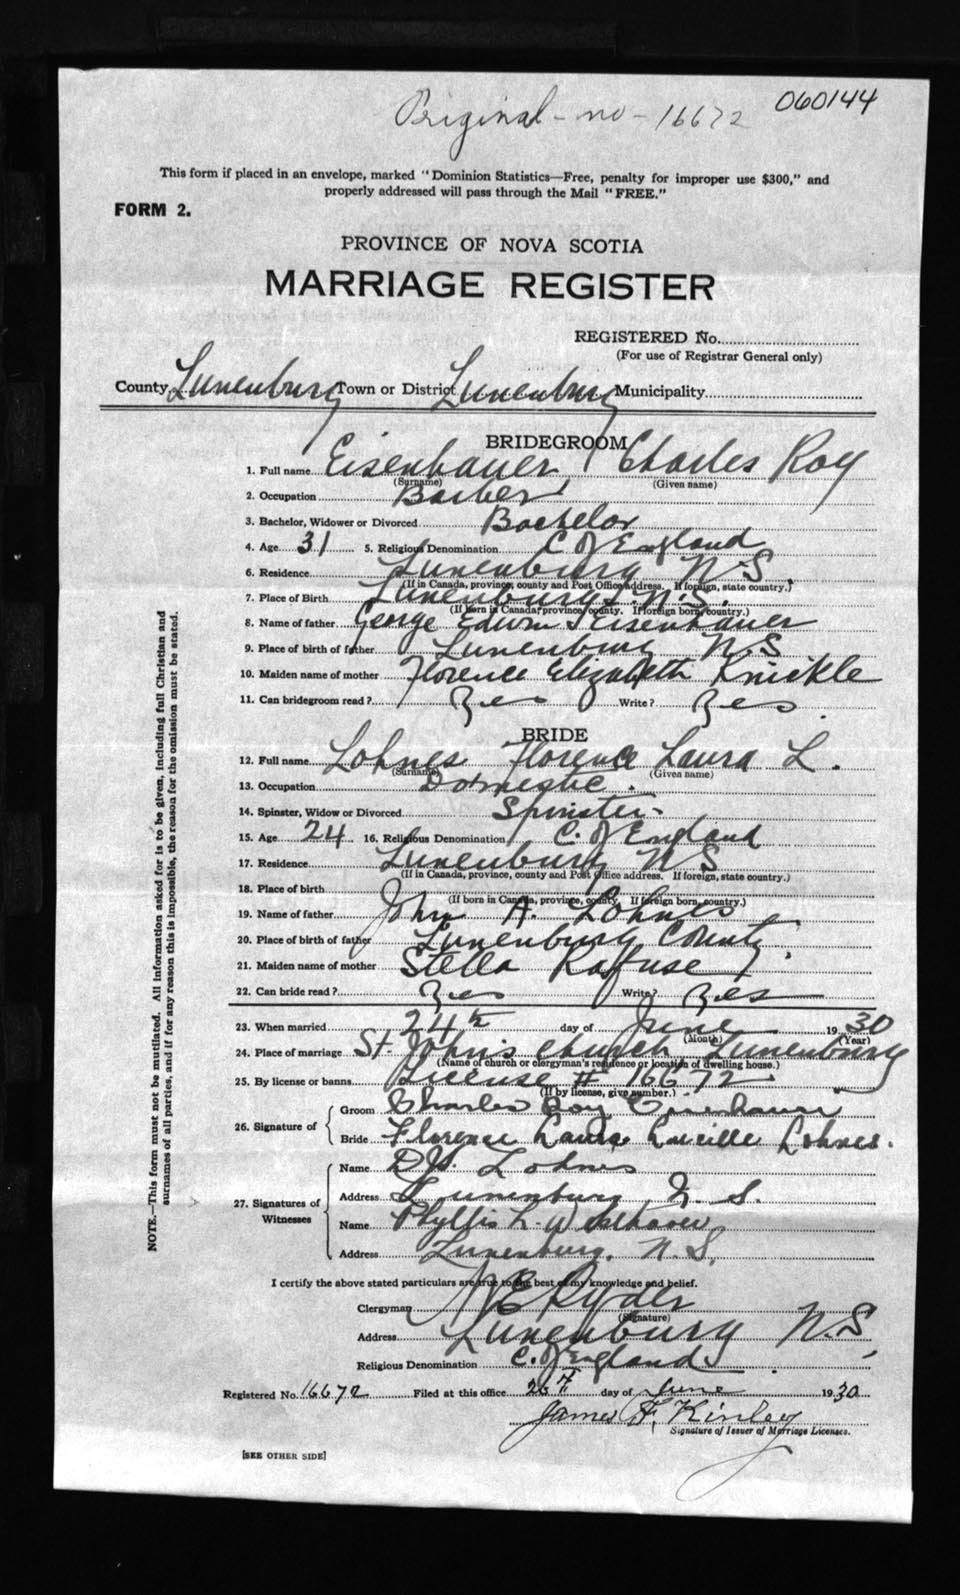 060144
Original - no - 16672
This form if placed in an envelope, marked "Dominion Statistics—Free, penalty for improper use $300," and
properly addressed will pass through the Mail "FREE."
FORM 2.
PROVINCE OF NOVA SCOTIA
MARRIAGE REGISTER
REGISTERED No.
(For use of Registrar General only)
County Lunenburg Town or District Lunenburg Municipality
BRIDEGROOM
1. Full name Eisenhauer Charles Roy
(Surname) (Given name)
2. Occupation Barber
3. Bachelor, Widower or Divorced Bachelor
4. Age 31 5. Religious Denomination C. of England
6. Residence Lunenburg N.S.
(If in Canada, province, county and Post Office address. If foreign, state country.)
7. Place of Birth Lunenburg N.S.
(If born in Canada, province, county. If foreign born, country.)
8. Name of father George Edwin Eisenhauer
9. Place of birth of father Lunenburg N.S
10. Maiden name of mother Florence Elizabeth Knickle
11. Can bridegroom read? Yes Write? Yes
BRIDE
12. Full name Lohnes Florence Laura L.
(Surname) (Given name)
13. Occupation Domestic.
14. Spinster, Widow or Divorced Spinster
15. Age 24 16. Religious Denomination C. of England
17. Residence Lunenburg N S
(If in Canada, province, county and Post Office address. If foreign, state country.)
18. Place of birth
(If born in Canada, province, county. If foreign born, country.)
19. Name of father John A. Lohnes
20. Place of birth of father Lunenburg County
21. Maiden name of mother Stella Rafuse
22. Can bride read? Yes Write? Yes
23. When married 24th day of June 1930
(Month) (Year)
24. Place of marriage St. John's Church Lunenburg
(Name of church or clergyman's residence or location of dwelling house.)
25. By license or banns License # 16672
(If by license, give number.)
26. Signature of
Groom Charles Roy Eisenhauer
Bride Florence Laura Lucille Lohnes.
27. Signatures of Witnesses
Name Lohnes
Address Lunenburg, N. S.
Name Phyllis L.
Address Lunenburg, N. S.
I certify the above stated particulars are true to the best of my knowledge and belief.
Clergyman W E Ryder
(Signature)
Address Lunenburg N.S,
Religious Denomination C. of England
Registered No. 16672 Filed at this office 26th day of June 1930
James F. Kinley
Signature of Issuer of Marriage Licenses.
[SEE OTHER SIDE]
NOTE.—This form must not be mutilated. All information asked for is to be given, including full Christian and
surnames of all parties, and if for any reason this is impossible, the reason for the omission must be stated.